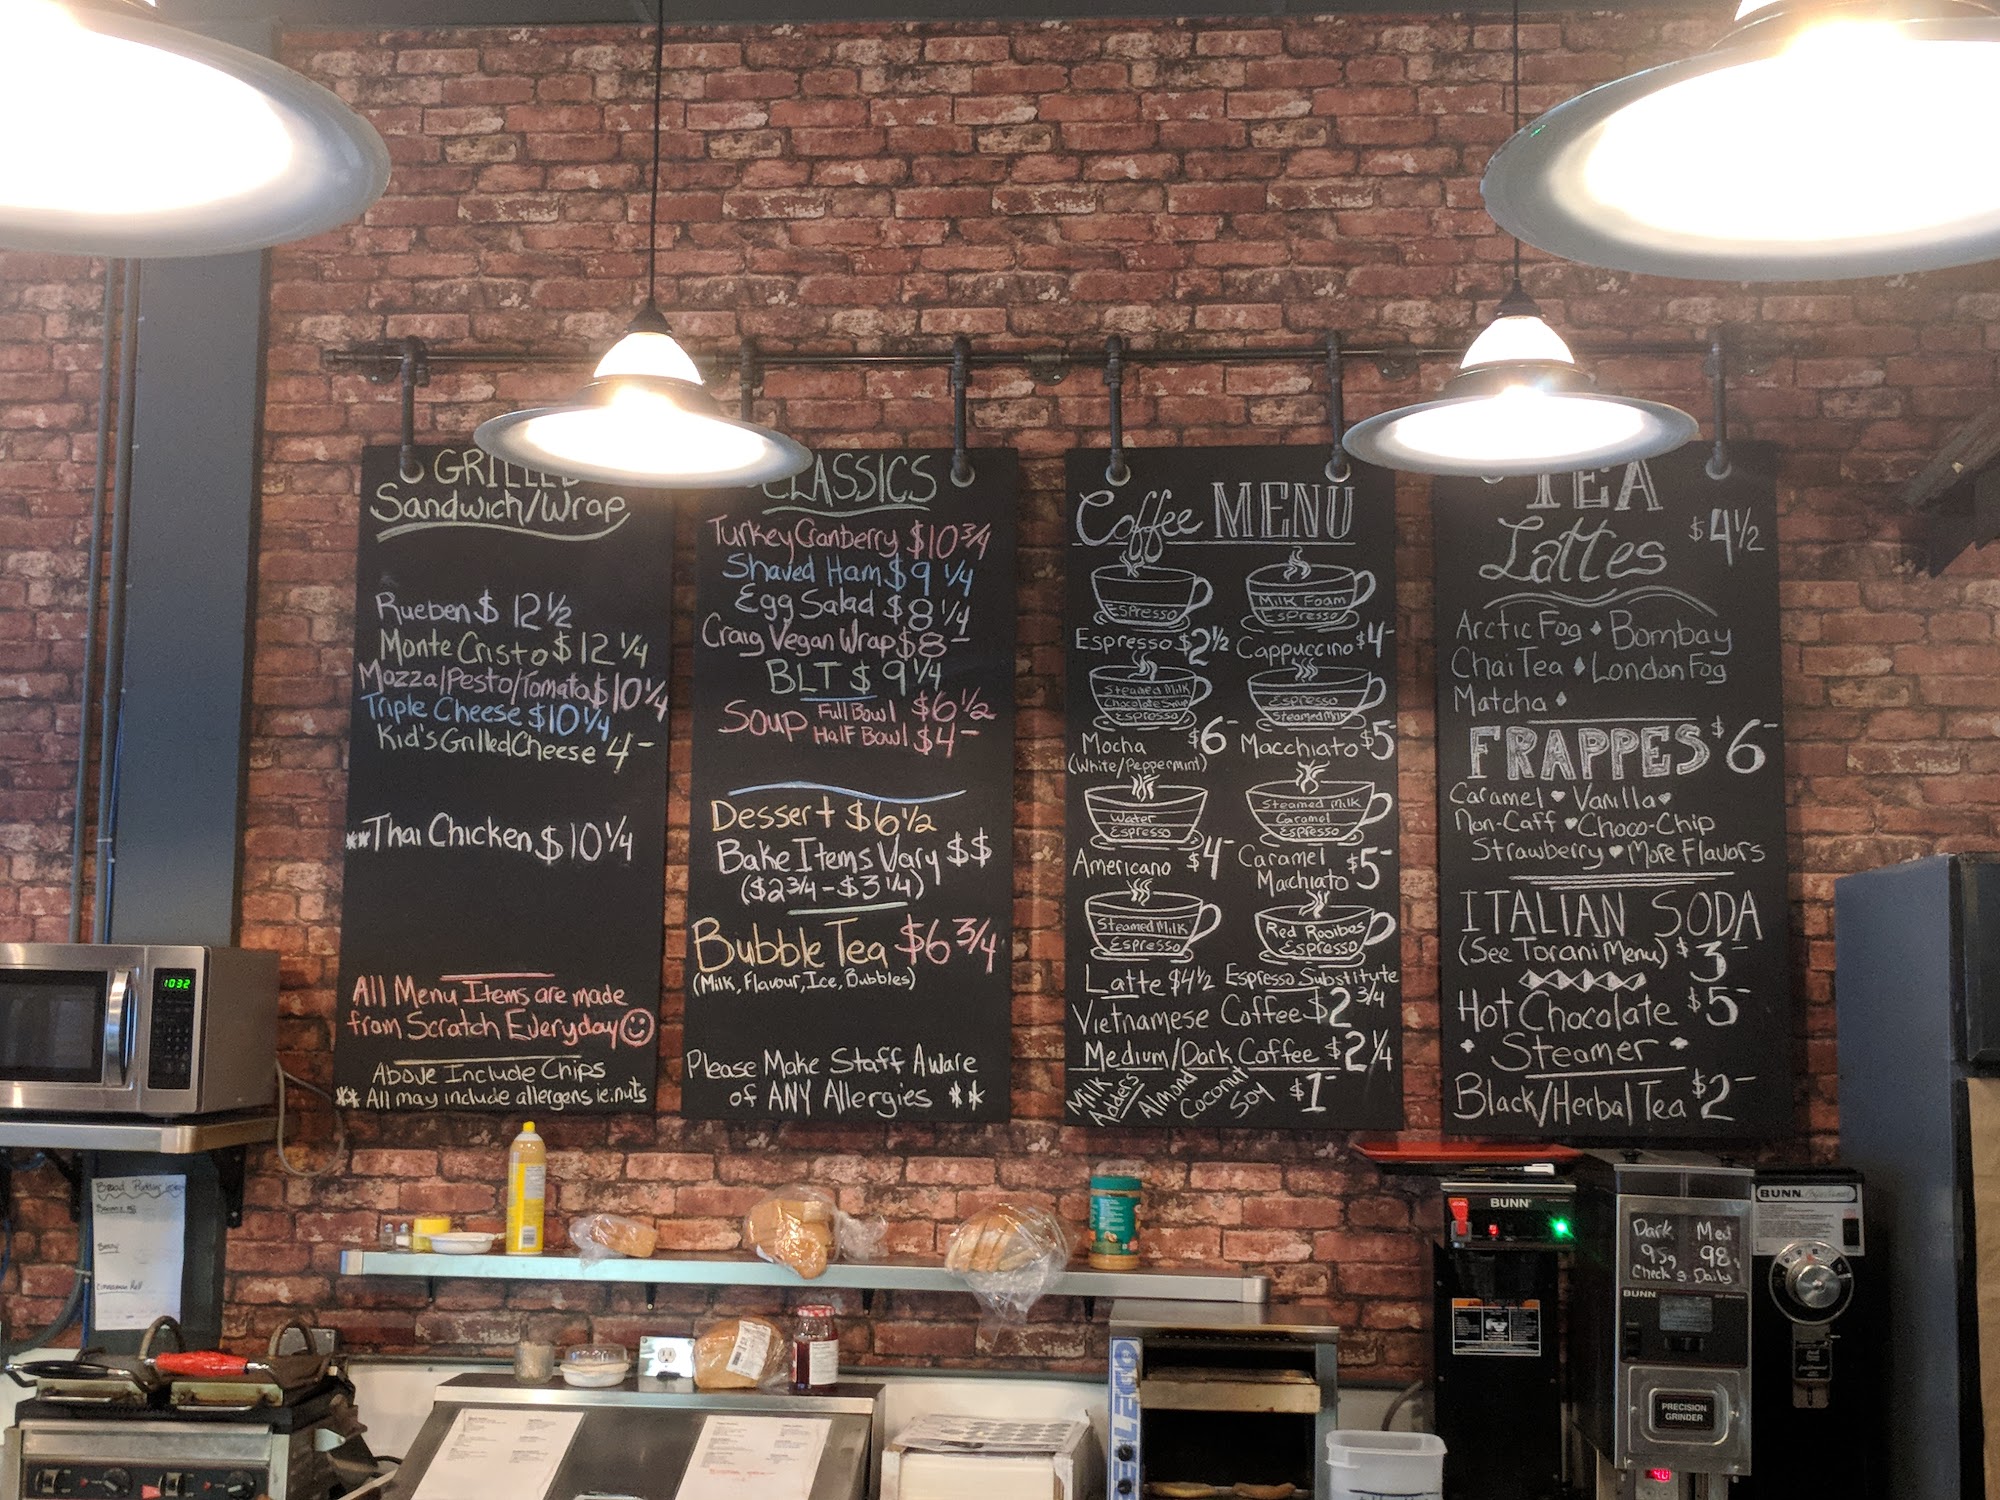 GRILLED
Sandwich/Wrap
Rueben $ 12 1/2
Monte Cristo $ 12 1/4
Mozza/Pesto/Tomato $10 1/4
Triple Cheese $10 1/4
Kid's Grilled Cheese 4-
**Thai Chicken $10 1/4
All Menu Items are made
from Scratch Everyday
Above Include Chips
** All may include allergens ie: nuts
CLASSICS
Turkey Cranberry $10 3/4
Shaved Ham $9 1/4
Egg Salad $8 1/4
Craig Vegan Wrap $8-
BLT $ 9 1/4
Soup Full Bowl $6 1/2
Half Bowl $4-
Dessert $6 1/2
Bake Items Vary $$
($2 3/4 - $3 1/4)
Bubble Tea $6 3/4
(Milk, Flavour, Ice, Bubbles)
Please Make Staff Aware
of ANY Allergies **
Coffee MENU
Espresso
Milk Foam
Espresso
Espresso $2 1/2 Cappuccino $4-
Steamed Milk
Chocolate Syrup
Espresso
Espresso
Steamed Milk
Mocha $6-
(White/Peppermint)
Macchiato $5-
Water
Espresso
Steamed Milk
Caramel
Espresso
Americano $4-
Caramel
Machiato $5-
Steamed Milk
Espresso
Red Rooibos
Espresso
Latte $4 1/2 Espresso Substitute
Vietnamese Coffee $2 3/4
Medium/Dark Coffee $2 1/4
Milk Adders Almond Coconut Soy $1-
TEA
Lattes $4 1/2
Arctic Fog • Bombay
Chai Tea • London Fog
Matcha •
FRAPPES $6-
Caramel ♥ Vanilla ♥
Non-Caff ♥ Choco-Chip
Strawberry ♥ More Flavors
ITALIAN SODA
(See Torani Menu) $3-
Hot Chocolate $5-
• Steamer •
Black/Herbal Tea $2-
1032
BUNN
BUNN
Dark Med
95g 98g
Check g Daily
BUNN
PRECISION
GRINDER